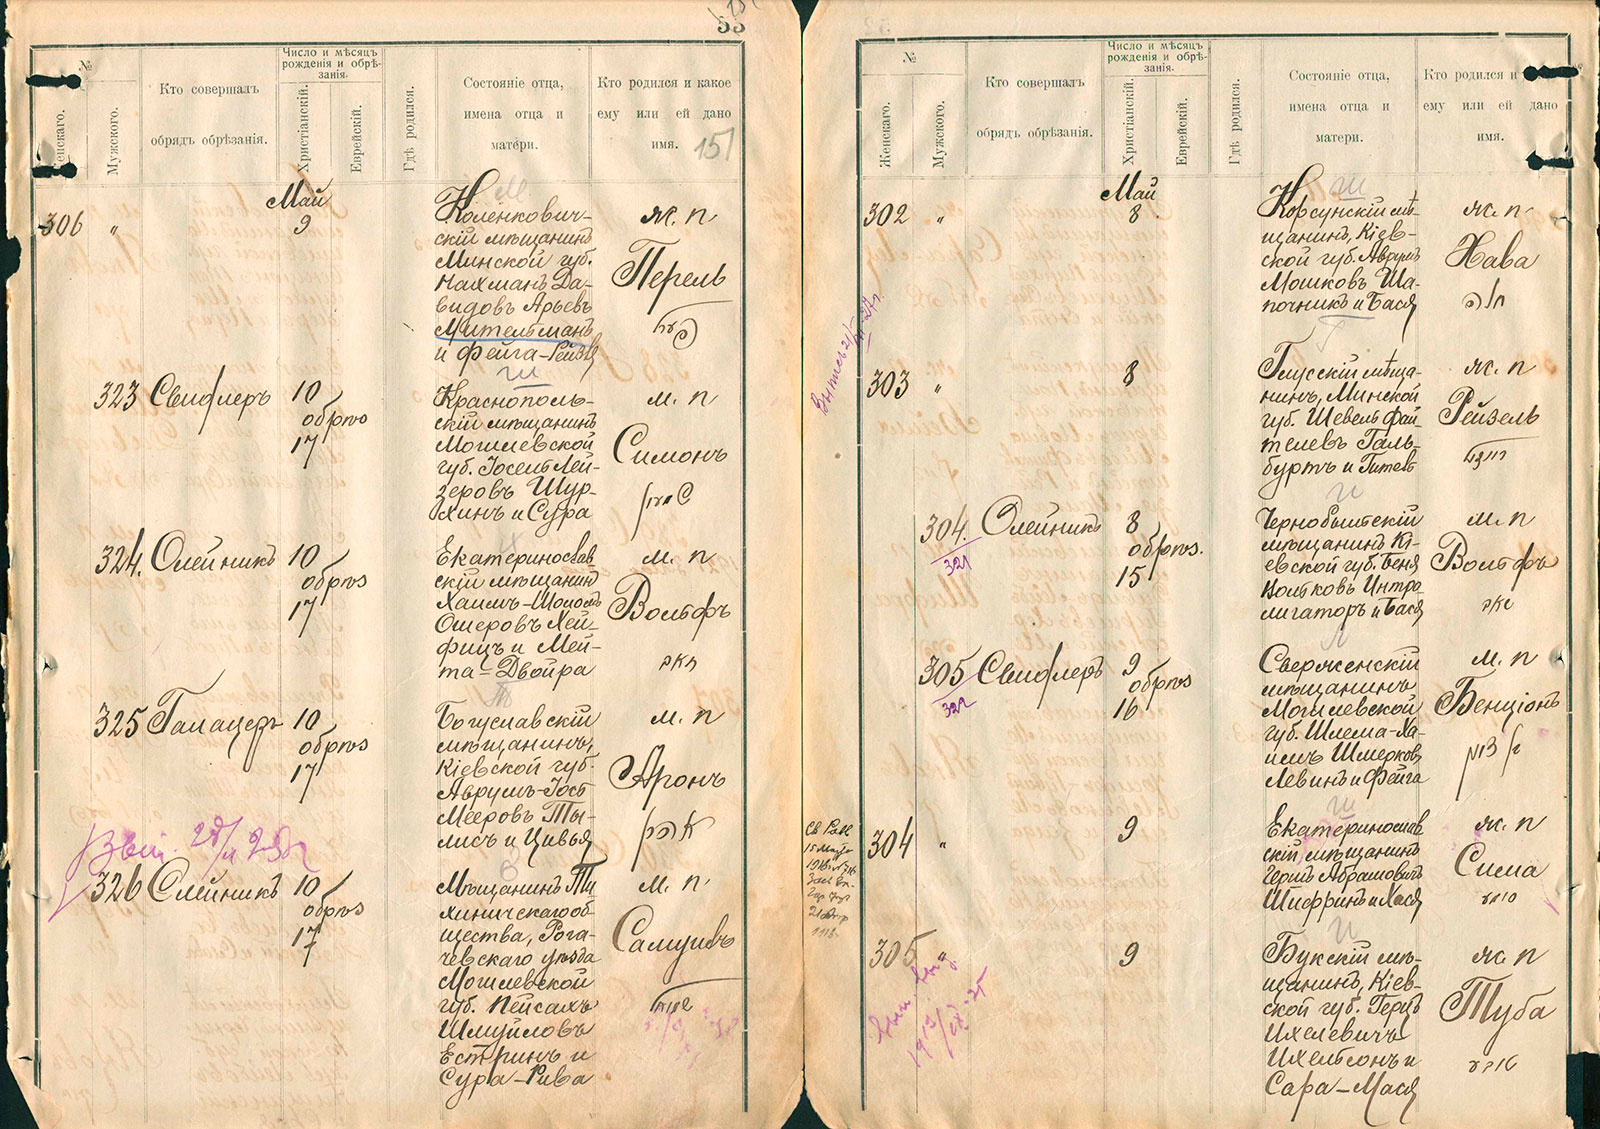 53
№
Женскаго.
Мужского.
Кто совершалъ
обрядъ обрѣзанія.
Число и мѣсяцъ
рожденія и обрѣ-
занія.
Христіанскій.
Еврейскій.
Гдѣ родился.
Состояніе отца,
имена отца и
матери.
Кто родился и какое
ему или ей дано
имя.
151
Май
306 „ 9
Коленкович-
скій мѣщанинъ
Минской губ.
Нахманъ Да-
видовъ Арьевъ
Мительманъ
и Фейга-Рейзя
ж. п
Перель
323 Свифлеръ 10
обрѣз
17
Краснополь-
скій мѣщанинъ
Могилевской
губ. Іосель Лей-
зеровъ Шур-
хинъ и Сура
м. п
Симонъ
324. Олейникъ 10
обрѣз
17
Екатеринослав
скій мѣщанинъ
Хаимъ-Шоломъ
Ошеровъ Хей-
фицъ и Мей-
та-Двойра
м. п
Вольфъ
325 Галацеръ 10
обрѣз
17
Богуславскій
мѣщанинъ,
Кіевской губ.
Аврумъ-Іось
Мееровъ Ты-
лисъ и Цивья
м. п
Аронъ
326 Олейникъ 10
обрѣз
17
Мѣщанинъ Ти
хиничскаго об
щества, Рога-
чевскаго уѣзда
Могилевской
губ. Пейсахъ
Шмуйловъ
Естринъ и
Сура-Рива
м. п.
Самуилъ
№
Женскаго.
Мужского.
Кто совершалъ
обрядъ обрѣзанія.
Число и мѣсяцъ
рожденія и обрѣ-
занія.
Христіанскій.
Еврейскій.
Гдѣ родился.
Состояніе отца,
имена отца и
матери.
Кто родился и
ему или ей дано
имя.
Май
302 „ 8
Корсунскій мѣ-
щанинъ, Кіев-
ской губ. Аврумъ
Мошковъ Ша-
почникъ и Бася
ж. п
Хава
303 „ 8
Глусскій мѣща-
нинъ, Минской
губ. Шевель Фай-
телевъ Галь-
буртъ и Гитель
ж. п
Рейзель
304. Олейникъ 8
321
обрѣз.
15
Чернобыльскій
мѣщанинъ Кі-
евской губ. Беня
Вольковъ Интро
лигаторъ и Бася
м. п
Вольфъ
305 Свифлеръ 9
322
обрѣз
16
Сверженскій
мѣщанинъ
Могилевской
губ. Шлема-Ха-
имъ Шмерков
Левинъ и Фейга
м. п
Бенціонъ
304 „ 9
Екатеринослав
скій мѣщанинъ
Герцъ Абрамовичъ
Шифринъ и Хася
ж. п
Сима
305 „ 9
Букскій мѣ-
щанинъ, Кіев-
ской губ. Герцъ
Ихелевичъ
Ихельсонъ и
Сара-Мася
ж. п
Туба